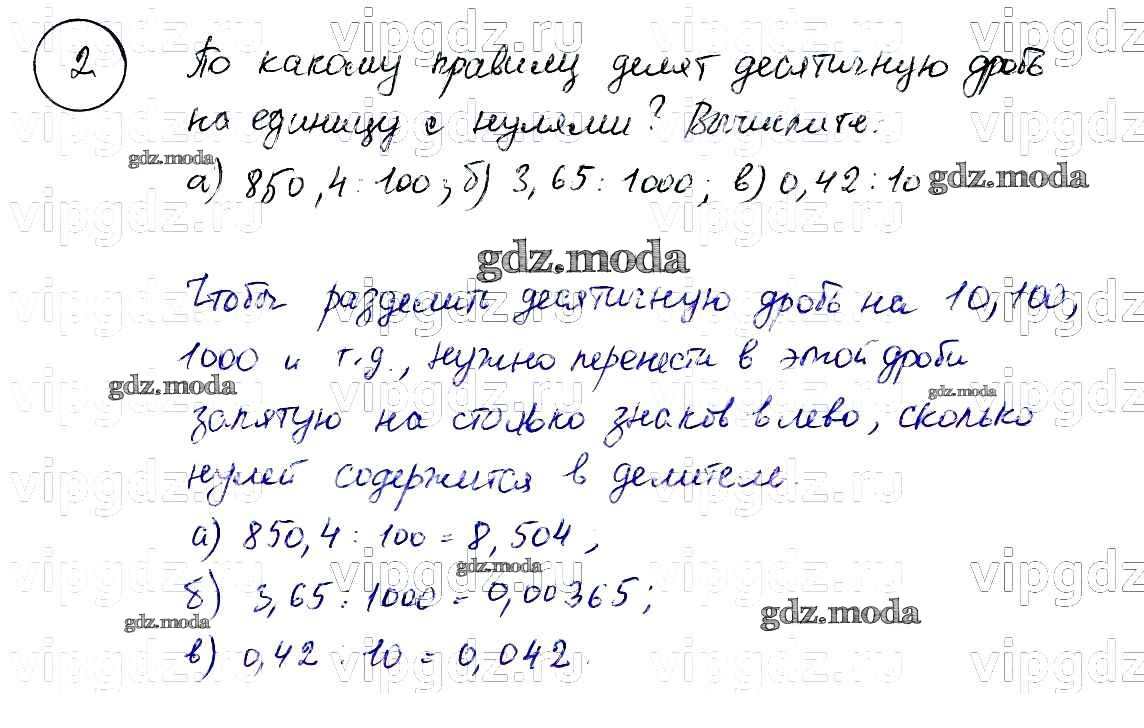 2 По какому правилу делят десятичную дробь
на единицу с нулями? Вычислите:
а) 850,4 : 100; б) 3,65 : 1000; в) 0,42 : 10
Чтобы разделить десятичную дробь на 10, 100,
1000 и т.д., нужно перенести в этой дроби
запятую на столько знаков влево, сколько
нулей содержится в делителе.
а) 850,4 : 100 = 8,504;
б) 3,65 : 1000 = 0,00365;
в) 0,42 : 10 = 0,042.
gdz.moda
gdz.moda
gdz.moda
gdz.moda
gdz.moda
gdz.moda
gdz.moda
gdz.moda
vipgdz.ru